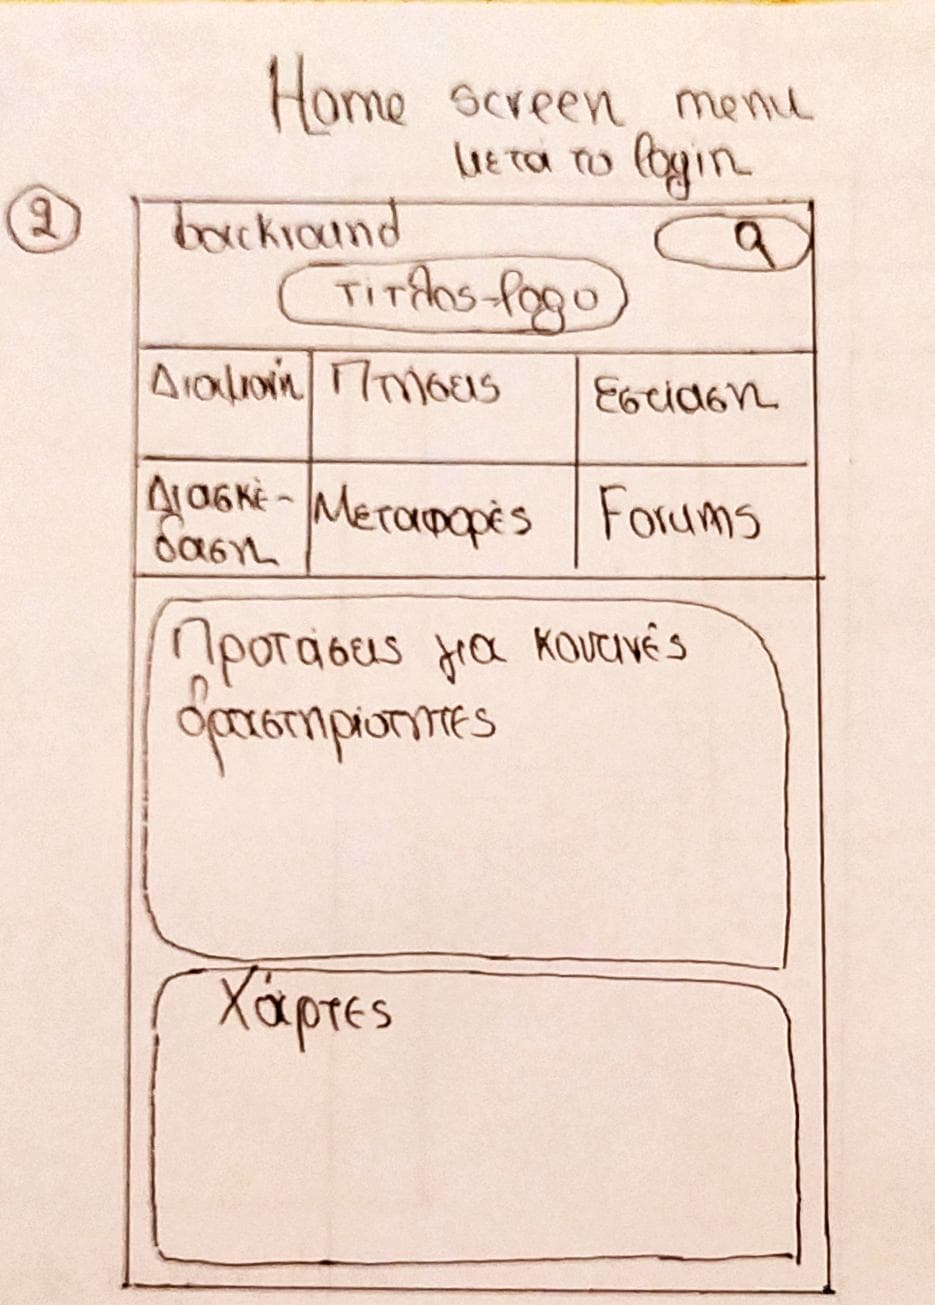 Home screen menu
μετά το login
2
backround
τίτλος-logo
Διαμονή
Πτήσεις
Εστίαση
Διασκέ-
δαση
Μεταφορές
Forums
Προτάσεις για κοντινές
δραστηριότητες
Χάρτες